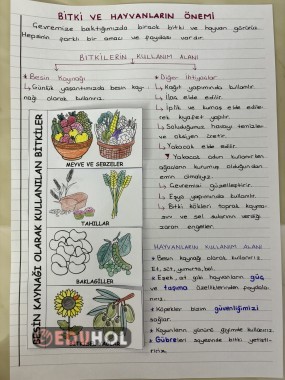 BİTKİ VE HAYVANLARIN ÖNEMİ
Çevremize baktığımızda birçok bitki ve hayvan görürüz.
Hepsinin farklı bir amacı ve faydası vardır.
BİTKİLERİN KULLANIM ALANI
* Besin Kaynağı
↳ Günlük yaşantımızda besin kay-
nağı olarak kullanırız.
BESİN KAYNAĞI OLARAK KULLANILAN BİTKİLER
MEYVE VE SEBZELER
TAHILLAR
BAKLAGİLLER
EDUHOL
* Diğer İhtiyaçlar
↳ Kağıt yapımında kullanılır.
↳ İlaç elde edilir.
↳ İplik ve kumaş elde edile-
rek kıyafet yapılır.
↳ Soluduğumuz havayı temizler
ve oksijen üretir.
↳ Yakacak elde edilir.
Yakacak odun kullanırken
ağaçların kurumuş olduğundan
emin olmalıyız.
↳ Çevremizi güzelleştirir.
↳ Eşya yapımında kullanılır.
↳ Bitki kökleri toprak kayma-
sını ve sel sularının verdiği
zararı engeller.
HAYVANLARIN KULLANIM ALANI
* Besin kaynağı olarak kullanırız.
Et, süt, yumurta, bal.
* Eşek, at gibi hayvanların güç
ve taşıma özelliklerinden faydala-
nırız.
* Köpekler bizim güvenliğimizi
sağlar.
* Koyunların yününü giyimde kullanırız.
* Gübreleri sayesinde bitki yetişti-
ririz.